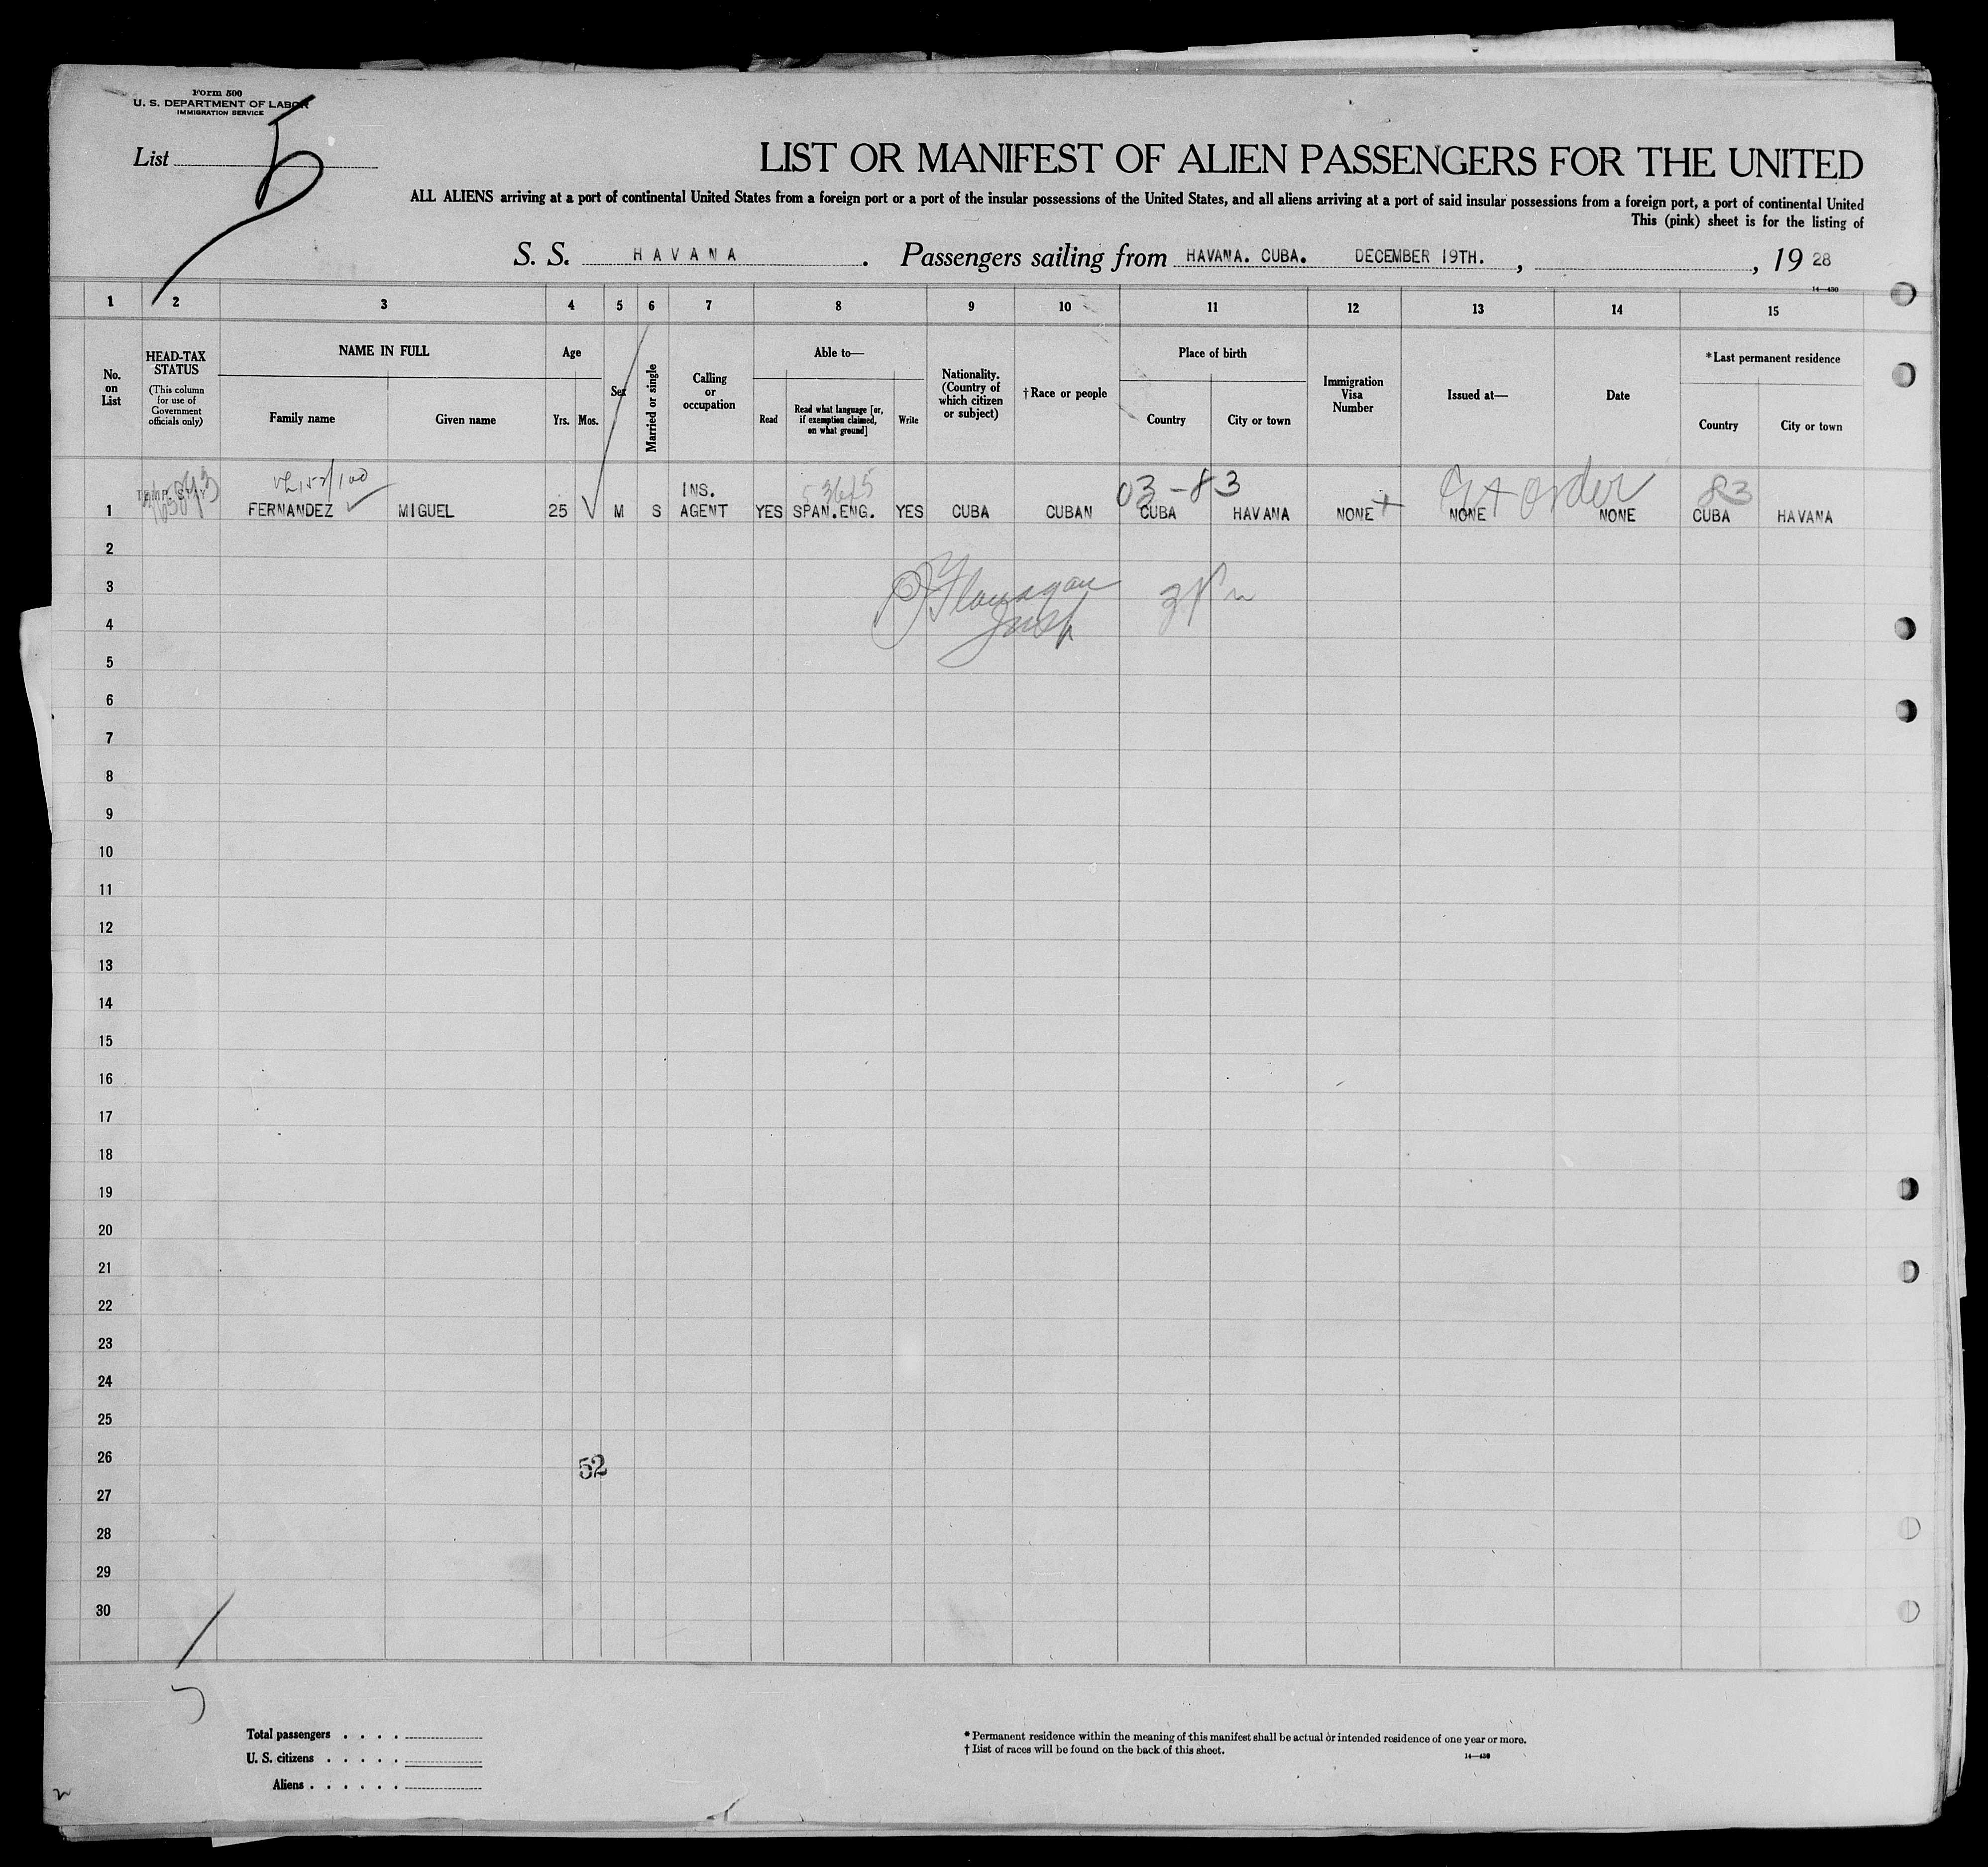 Form 500
U. S. DEPARTMENT OF LABOR
IMMIGRATION SERVICE
List 5
LIST OR MANIFEST OF ALIEN PASSENGERS FOR THE UNITED
ALL ALIENS arriving at a port of continental United States from a foreign port or a port of the insular possessions of the United States, and all aliens arriving at a port of said insular possessions from a foreign port, a port of continental United
This (pink) sheet is for the listing of
S. S. HAVANA. Passengers sailing from HAVANA. CUBA. DECEMBER 19TH. , , 19 28
14—430
1 2 3 4 5 6 7 8 9 10 11 12 13 14 15
No. on List
HEAD-TAX STATUS
(This column for use of Government officials only)
NAME IN FULL
Family name
Given name
Age
Yrs.
Mos.
Sex
Married or single
Calling or occupation
Able to—
Read
Read what language [or, if exemption claimed, on what ground]
Write
Nationality. (Country of which citizen or subject)
†Race or people
Place of birth
Country
City or town
Immigration Visa Number
Issued at—
Date
*Last permanent residence
Country
City or town
03-83
83
TEMP. STAY
1 FERNANDEZ MIGUEL 25 M S INS. AGENT YES SPAN.ENG. YES CUBA CUBAN CUBA HAVANA NONE NONE NONE CUBA HAVANA
order
2
3
Flanagan
4
Insp
5
6
7
8
9
10
11
12
13
14
15
16
17
18
19
20
21
22
23
24
25
26
52
27
28
29
30
Total passengers . . . .
U. S. citizens . . . . .
Aliens . . . . . .
* Permanent residence within the meaning of this manifest shall be actual or intended residence of one year or more.
† List of races will be found on the back of this sheet.
14—430